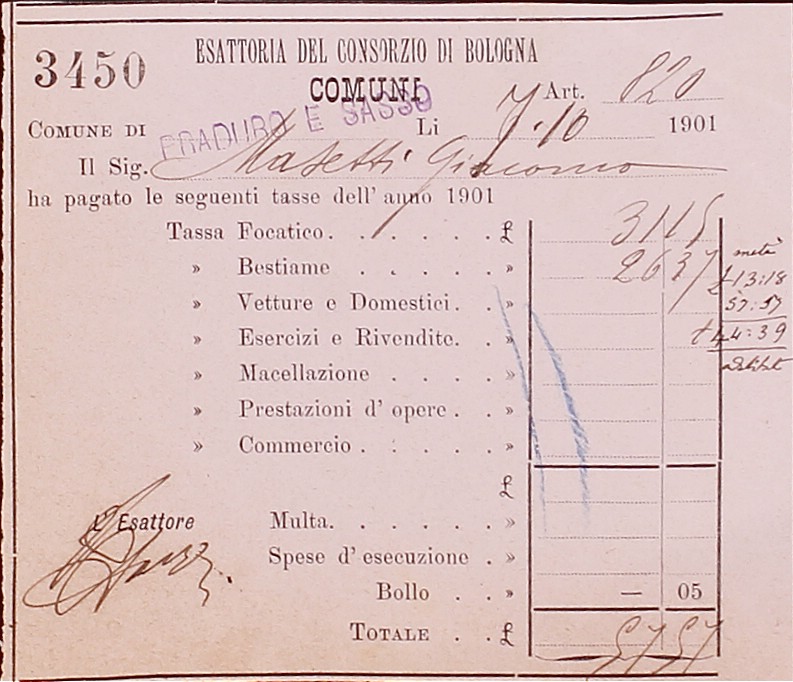 3450
ESATTORIA DEL CONSORZIO DI BOLOGNA
COMUNI
Art. 820
COMUNE DI PRADURO E SASSO Li 7.10 1901
Il Sig. Masetti Giacomo
ha pagato le seguenti tasse dell' anno 1901
Tassa Focatico. . . . . . £ 31 15
» Bestiame . . . . . » 26 37
» Vetture e Domestici. . »
» Esercizi e Rivendite. . »
» Macellazione . . . . »
» Prestazioni d' opere . . »
» Commercio . . . . . »
metà
13:18
57:57
44:39
£
L' Esattore
Multa. . . . . . »
Spese d' esecuzione . »
Bollo . . » — 05
TOTALE . . £ 57 57